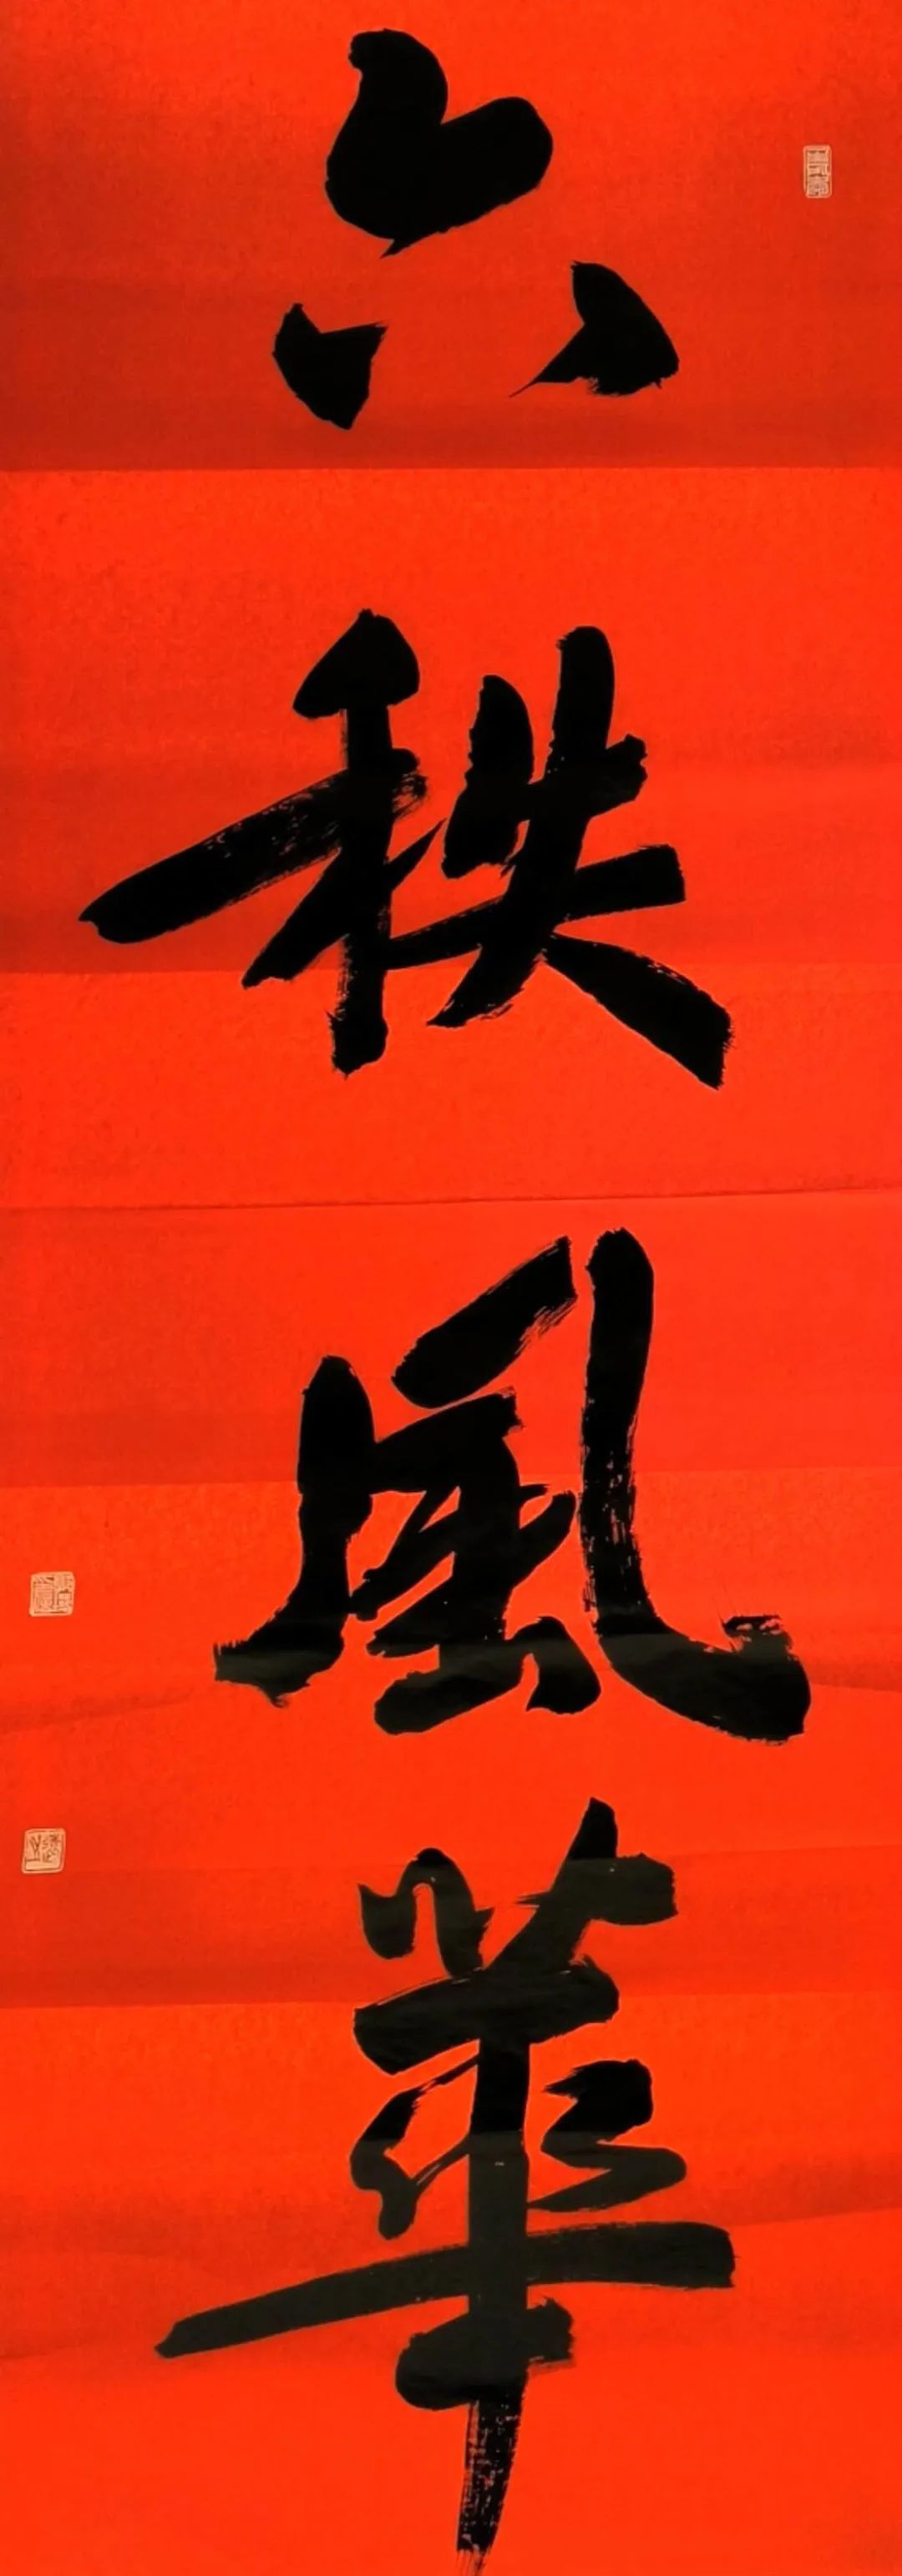 六秩風華